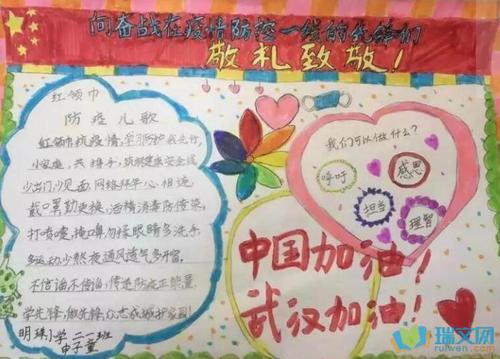 向奋战在疫情防控一线的先锋们
敬礼致敬！
红领巾
防疫儿歌
红领巾抗疫情，牢防护我先行，
小家庭，共携手，筑牢健康安全线
少出门，少见面，网络拜年心相连，
戴口罩勤更换，酒精消毒防传染，
打喷嚏，掩口鼻勿揉眼睛多洗手，
多运动少熬夜通风透气多开窗，
不信谣不传谣，传走防疫正能量
学先锋，做先锋，众志成城护家园！
明珠小学二一班
我们可以做什么？
呼吁
感恩
担当
理智
中国加油！
武汉加油！
瑞文网
ruiwen.com